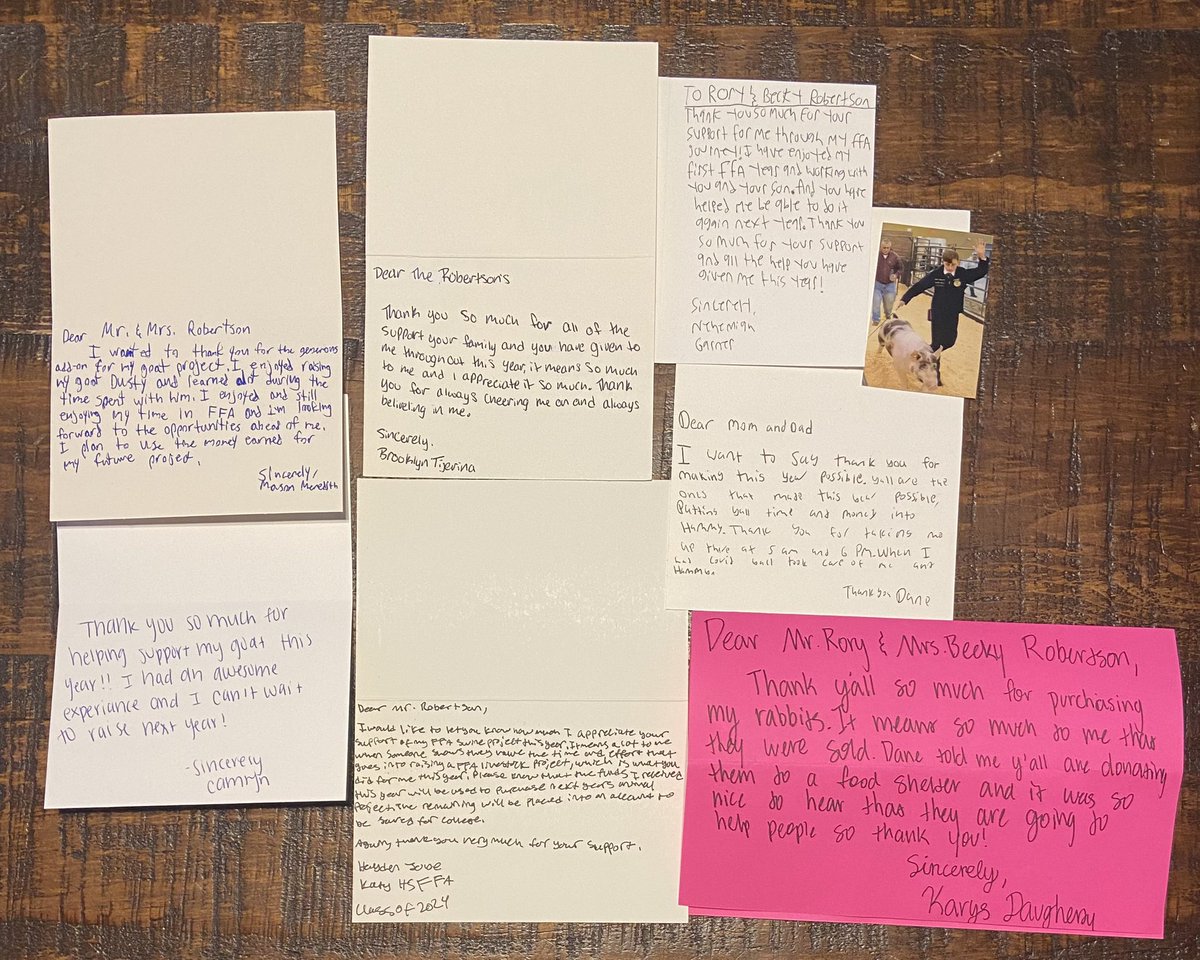 Dear Mr. & Mrs. Robertson
I wanted to thank you for the generous
add-on for my goat project. I enjoyed raising
my goat Dusty and learned alot during the
time spent with him. I enjoyed and still
enjoying my time in FFA and I'm looking
forward to the opportunities ahead of me.
I plan to use the money earned for
my future project.
Sincerely,
Mason Meredith
Thank you so much for
helping support my goat this
year!! I had an awesome
experiance and I can't wait
to raise next year!
-Sincerely
Camryn
Dear The Robertson's
Thank you so much for all of the
support your family and you have given to
me throughout this year, it means so much
to me and I appreciate it so much. Thank
you for always cheering me on and always
believing in me.
Sincerely,
Brooklyn Tijerina
Dear Mr. Robertson,
I would like to let you know how much I appreciate your
support of my FFA swine project this year. It means a lot to me
when someone shows they value the time and effort that
goes into raising a FFA livestock project, which is what you
did for me this year. Please know that the funds I received
this year will be used to purchase next years animal
project. The remaining will be placed into an account to
be saved for college.
Again, thank you very much for your support.
Hayden
Katy HS FFA
Class of 2024
TO RORY & BECKY ROBERTSON
Thank you so much for your
support for me through my FFA
journey! I have enjoyed my
first FFA year and working with
you and your son. And you have
helped me be able to do it
again next year. Thank you
so much for your support
and all the help you have
given me this year!
Sincerely,
Nehemiah
Garner
Dear Mom and Dad
I want to say thank you for
making this year possible. yall are the
ones that made this year possible,
Putting yall time and money into
Hammy. Thank you for taking me
up there at 5 am and 6 PM. When I
had covid yall took care of me and
Thank you Dane
Dear Mr. Rory & Mrs. Becky Robertson,
Thank y'all so much for purchasing
my rabbits. It means so much to me that
they were sold. Dane told me y'all are donating
them to a food shelter and it was so
nice to hear that they are going to
help people so thank you!
Sincerely,
Karys Daugherty